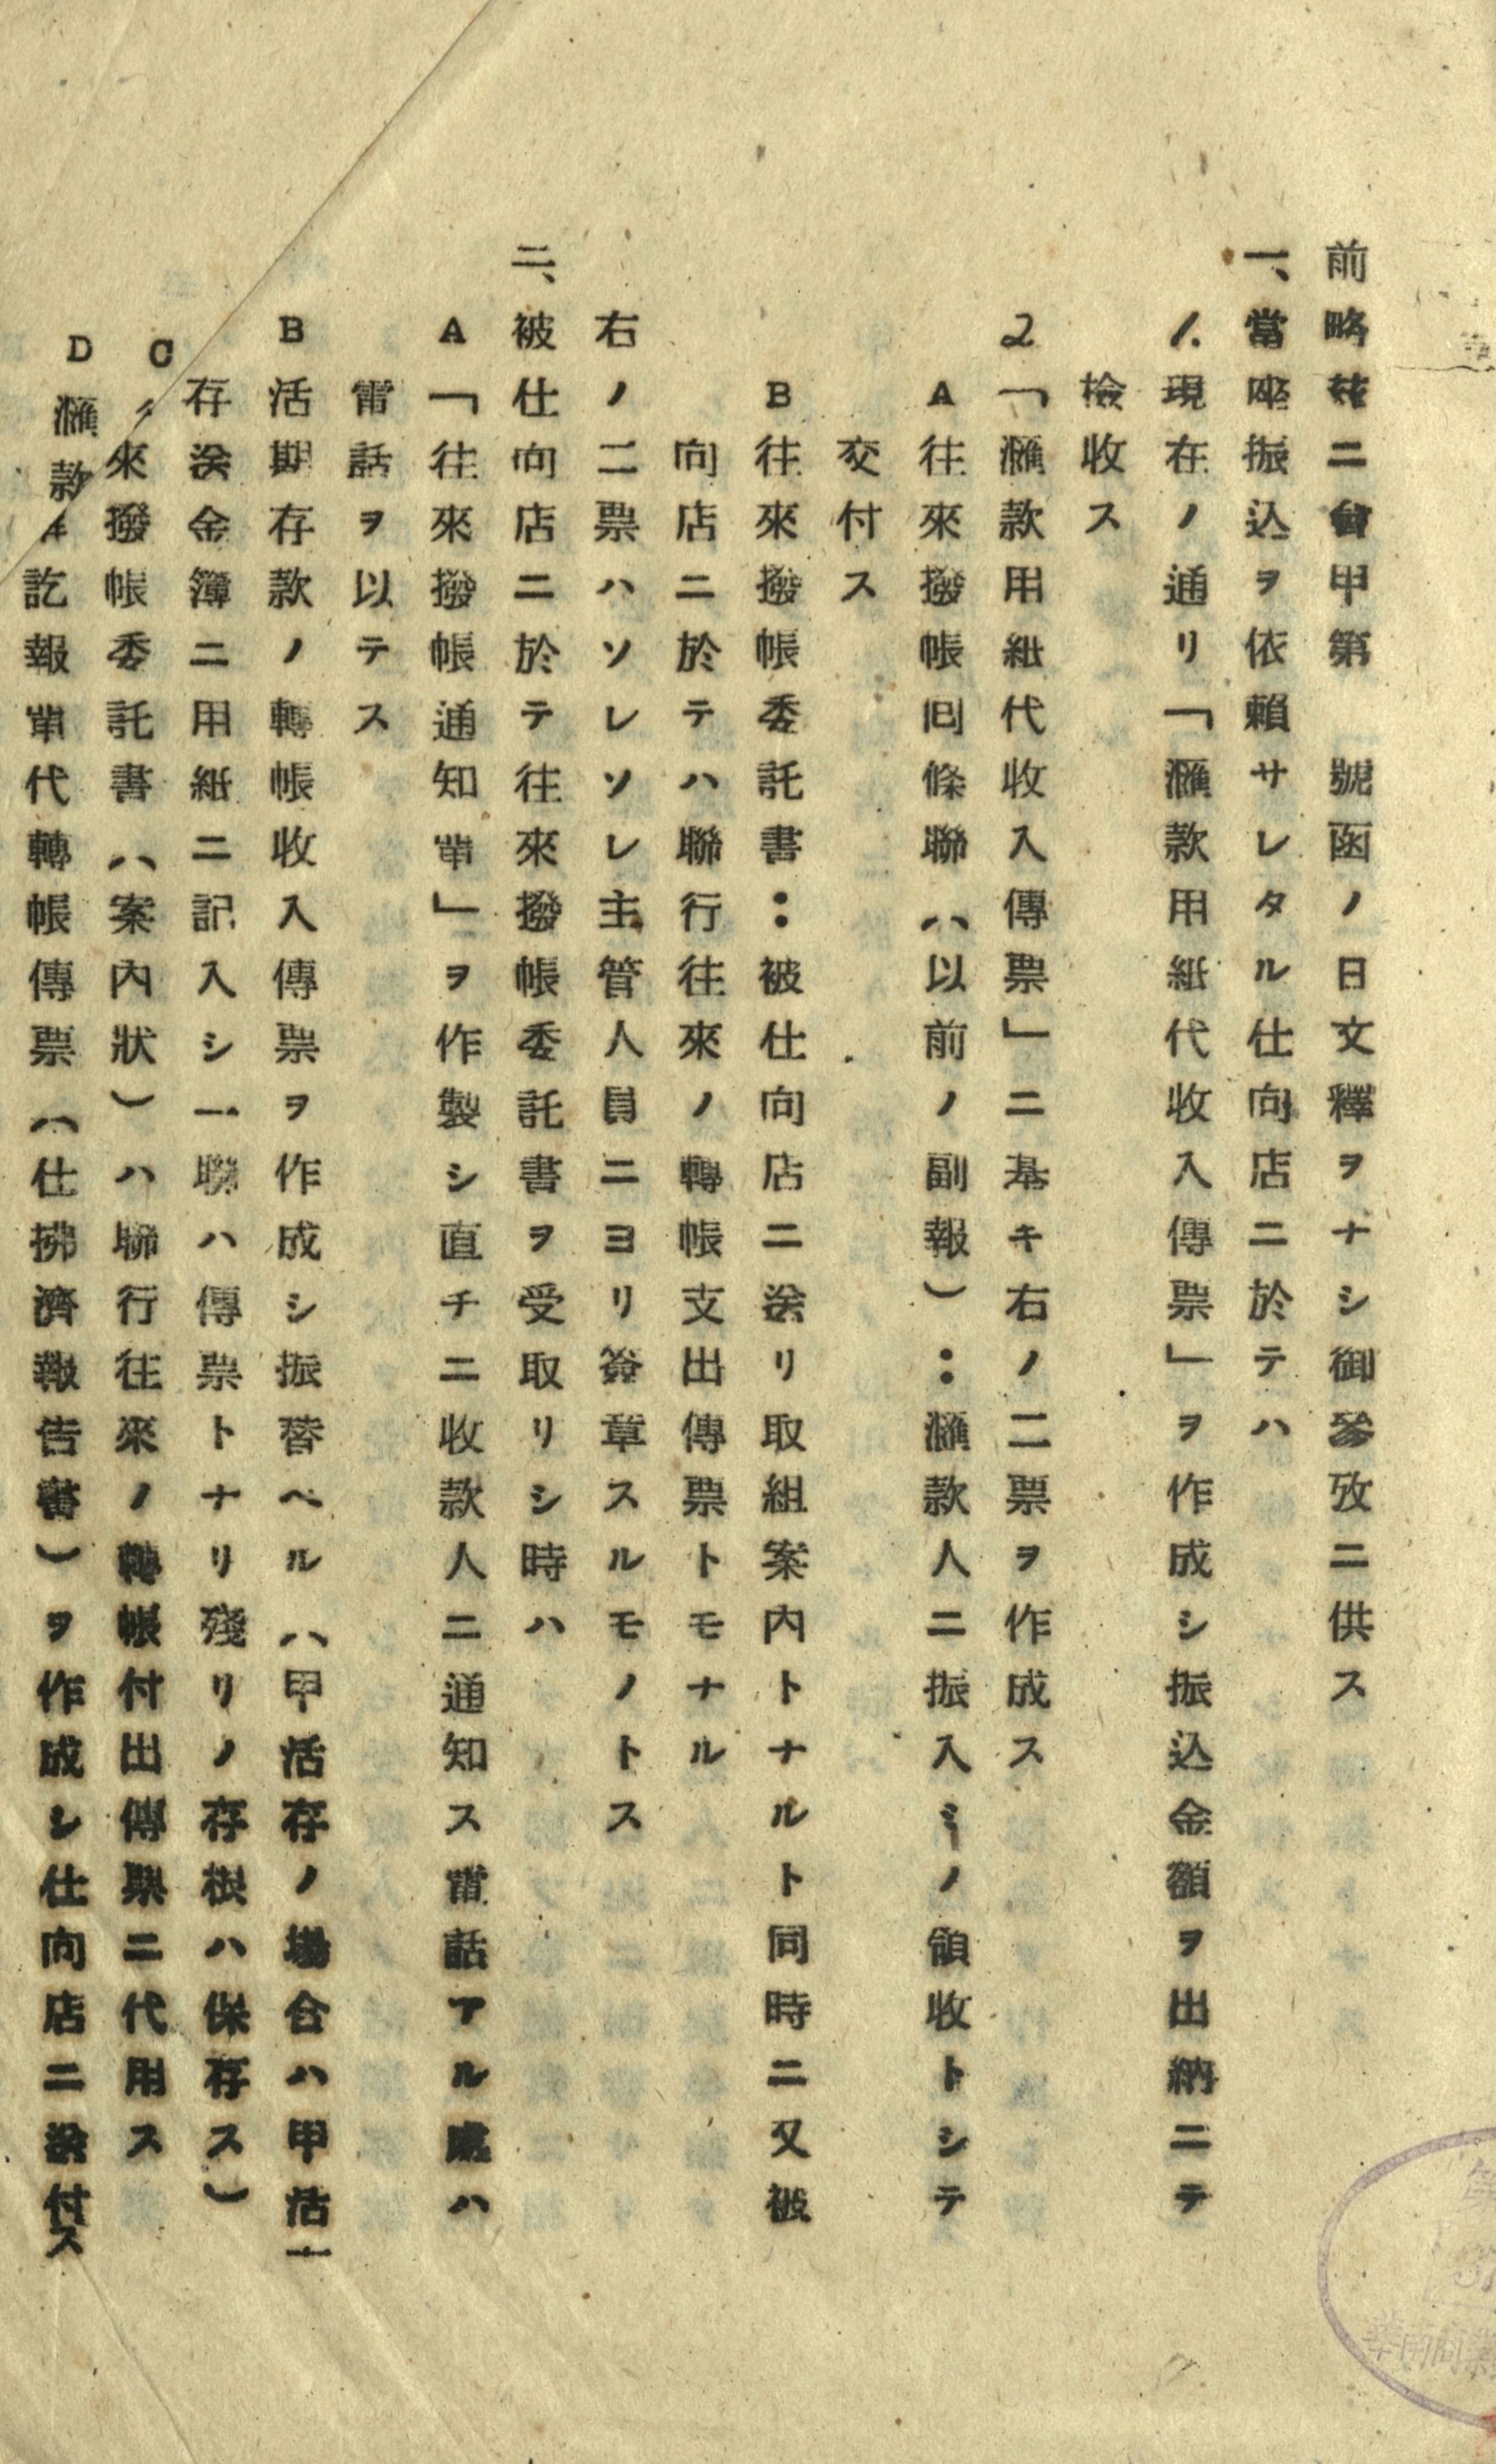 前略玆ニ台甲第　號函ノ日文釋ヲナシ御參攷ニ供ス
一、當座振込ヲ依賴サレタル仕向店ニ於テハ
1. 現在ノ通リ「滙款用紙代收入傳票」ヲ作成シ振込金額ヲ出納ニテ
檢收ス
2 「滙款用紙代收入傳票」ニ基キ右ノ二票ヲ作成ス
A 往來撥帳回條聯（以前ノ副報）：滙款人ニ振入ミノ領收トシテ
交付ス
B 往來撥帳委託書：被仕向店ニ送リ取組案內トナルト同時ニ又被
向店ニ於テハ聯行往來ノ轉帳支出傳票トモナル
右ノ二票ハソレソレ主管人員ニヨリ簽章スルモノトス
二、被仕向店ニ於テ往來撥帳委託書ヲ受取リシ時ハ
A 「往來撥帳通知單」ヲ作製シ直チニ收款人ニ通知ス電話アル處ハ
電話ヲ以テス
B 活期存款ノ轉帳收入傳票ヲ作成シ振替ヘル（甲活存ノ場合ハ甲活
存送金簿ニ用紙ニ記入シ一聯ハ傳票トナリ殘リノ存根ハ保存ス）
C 來撥帳委託書（案內狀）ハ聯行往來ノ轉帳付出傳票ニ代用ス
D 滙款 訖報單代轉帳傳票（仕拂濟報告書）ヲ作成シ仕向店ニ送付ス